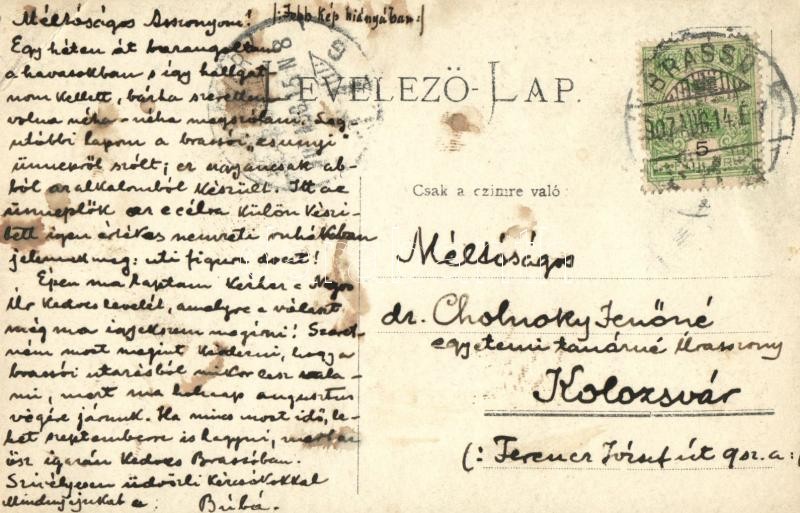 Méltóságos Asszonyom!
/: Jobb kép hiányában :/
Egy héten át barangoltam
a havasokban s így hallgat-
nom kellett, bárha szerettem
volna néha-néha megszólani. Leg-
utóbbi lapom a brassói „csunyi”
ünnepről szólt; ez ugyancsak ab-
ból az alkalomból készült. Itt az
ünneplők az e célra külön készí-
tett igen értékes nemzeti ruhákban
jelennek meg: uti figura docet!
Épen ma kaptam kézhez a Nagys
Úr kedves levelét, amelyre a választ
még ma igyekszem megírni! Szeret-
ném most megint kiderni, hogy a
brassói utazásból mikor lesz vala-
mi, mert ma holnap augusztus
végére járunk. Ha nincs most idő, le-
het szeptemberre is hagyni, mert az
ősz igazán kedves Brassóban.
Szívélyesen üdvözli kézcsókokkal
Mindnyájukat
Búbá.
LEVELEZŐ-LAP.
BRASSÓ
907 AUG. 14. É
5
Csak a czimre való
Méltóságos
dr. Cholnoky Jenőné
egyetemi tanárné Úrasszony
Kolozsvár
(: Ferencz József út 9sz.a :)